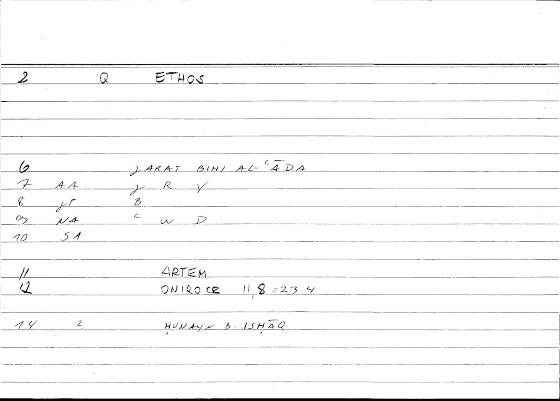 2 Q ETHOS
6 ɟARAT BIHI AL-ʿĀDA
7 AA ɟ R Y
8 ɟr B
9 NA ʿ W D
10 SA
11 ARTEM
12 ONIROCR 11,8=23.4
14 2 ḤUNAYN B. ISḤĀQ